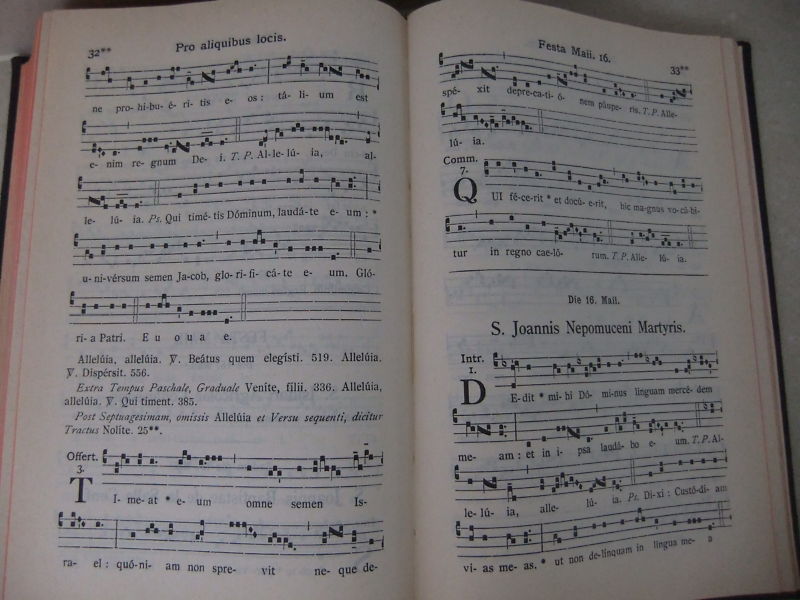 32**
Pro aliquibus locis.
ne pro- hi-bu- é- ri- tis e- os : tá- li- um est
e- nim re- gnum De- i. T. P. Al- le- lú- ia, al-
le- lú- ia. Ps. Qui timé- tis Dóminum, laudá- te e- um : *
u- ni-vérsum semen Ja-cob, glo- ri- fi- cá- te e- um. Gló-
ri- a Patri. E u o u a e.
Allelúia, allelúia. ℣. Beátus quem elegísti. 519. Allelúia.
℣. Dispérsit. 556.
Extra Tempus Paschale, Graduale Veníte, fílii. 336. Allelúia,
allelúia. ℣. Qui timent. 385.
Post Septuagesimam, omissis Allelúia et Versu sequenti, dicitur
Tractus Nolite. 25**.
Offert.
3.
TI- me- at * e- um omne semen Is-
ra- el : quó-ni- am non spre- vit ne- que de-
Festa Maii. 16.
33**
spé- xit depre-ca- ti- ó- nem páupe- ris. T. P. Alle-
lú- ia.
Comm.
7.
QUI fé- ce- rit * et docú- e-rit, hic ma-gnus vo-cá-bi-
tur in regno cae-ló- rum. T. P. Alle- lú- ia.
Die 16. Maii.
S. Joannis Nepomuceni Martyris.
Intr.
1.
DE- dit * mi- hi Dó- mi-nus linguam mercé- dem
me- am : et in i- psa laudá- bo e- um. T. P. Al-
le- lú- ia, alle- lú- ia. Ps. Di-xi : Custó-di- am
vi- as me- as. * ut non de-línquam in lingua me- a